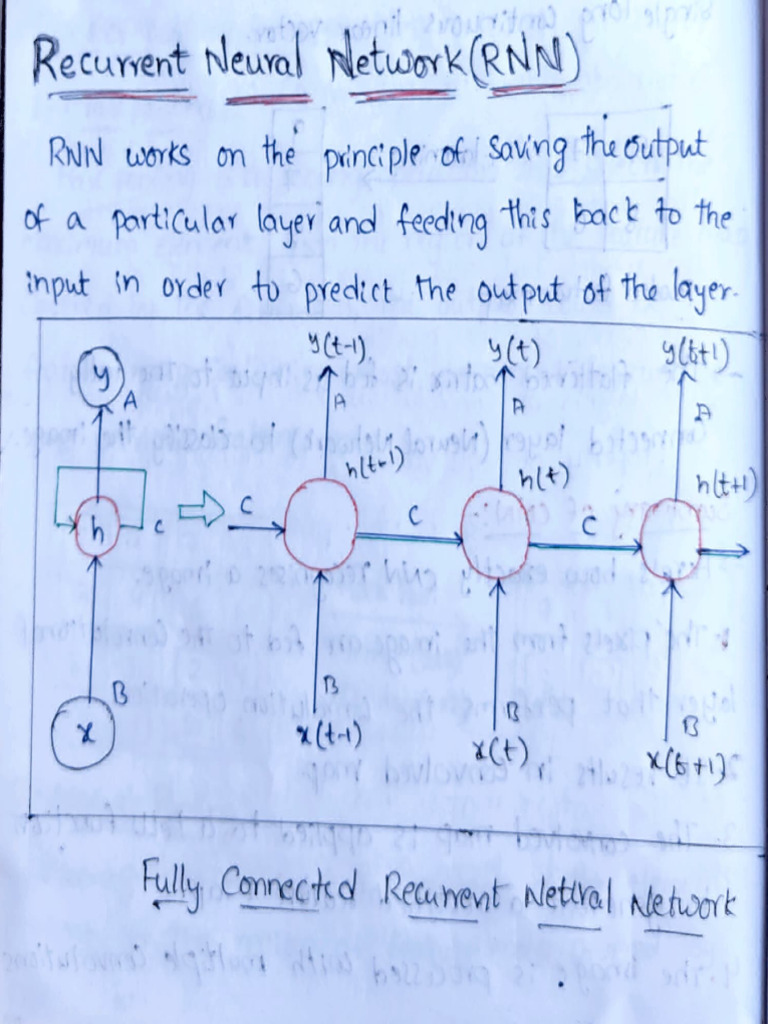 Recurrent Neural Network (RNN)
RNN works on the principle of saving the output
of a particular layer and feeding this back to the
input in order to predict the output of the layer.
y(t-1) y(t) y(t+1)
y
A A A A
h(t-1) h(t) h(t+1)
h c C C C
B B B B
x x(t-1) x(t) x(t+1)
Fully Connected Recurrent Neural Network